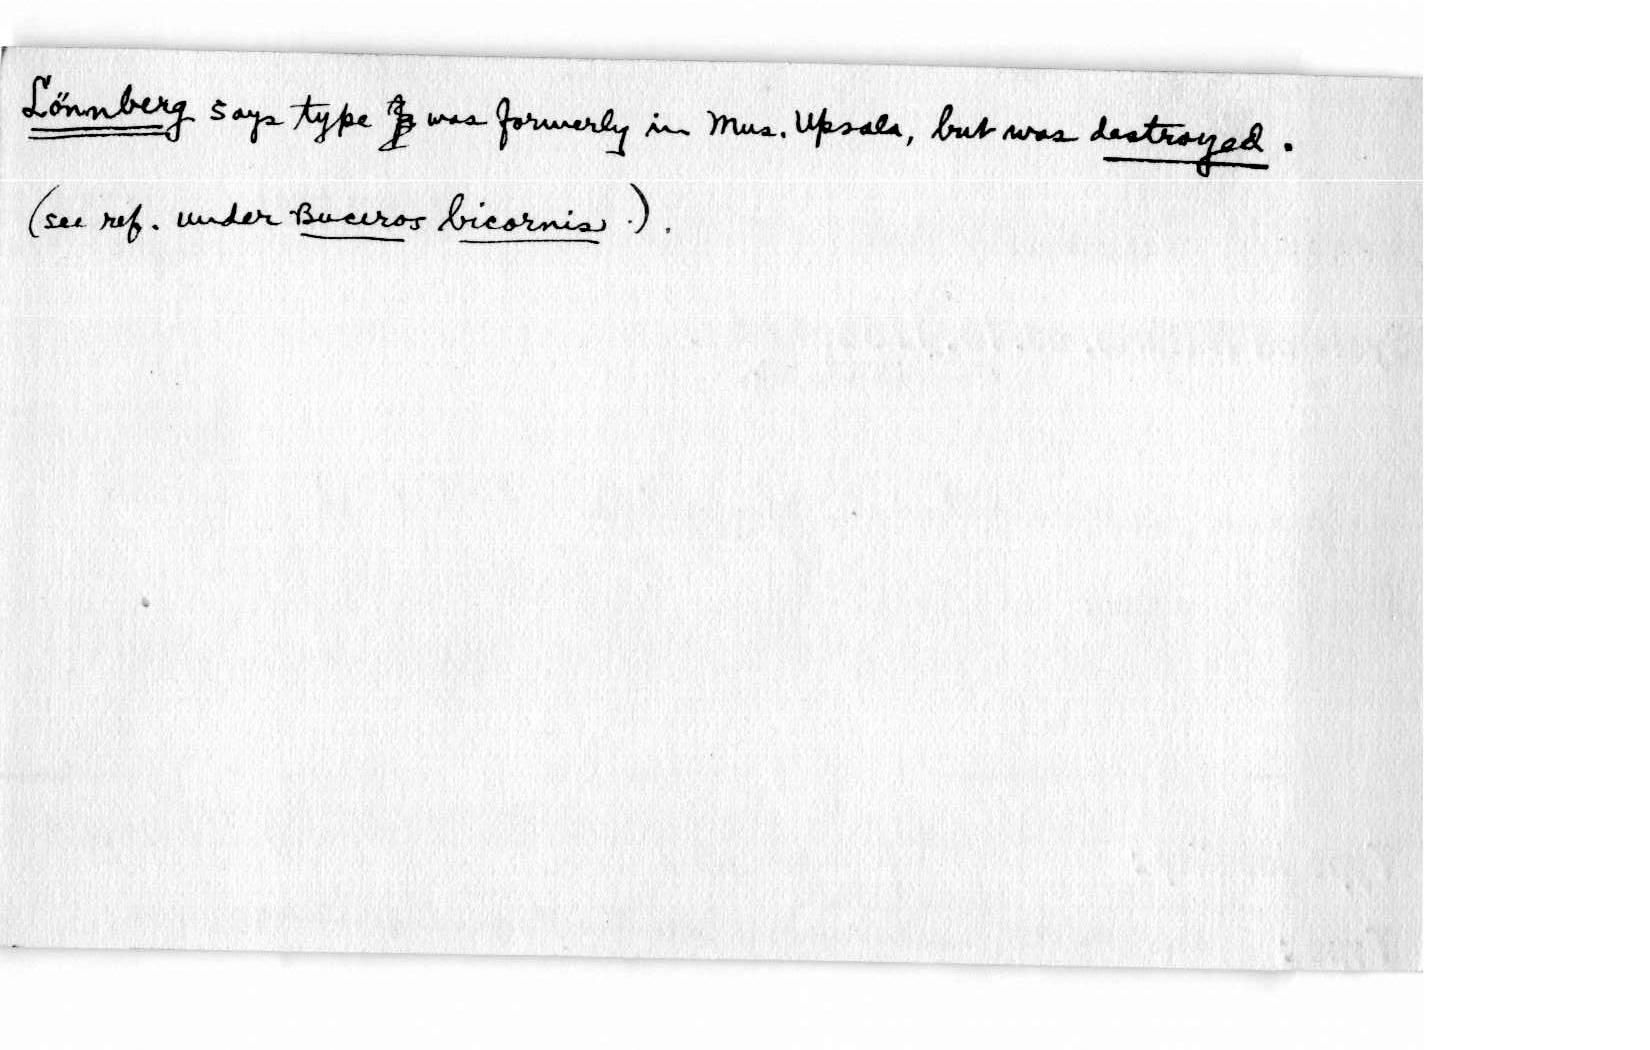 Lönnberg says type was formerly in Mus. Upsala, but was destroyed.
(see ref. under Buceros bicornis.).